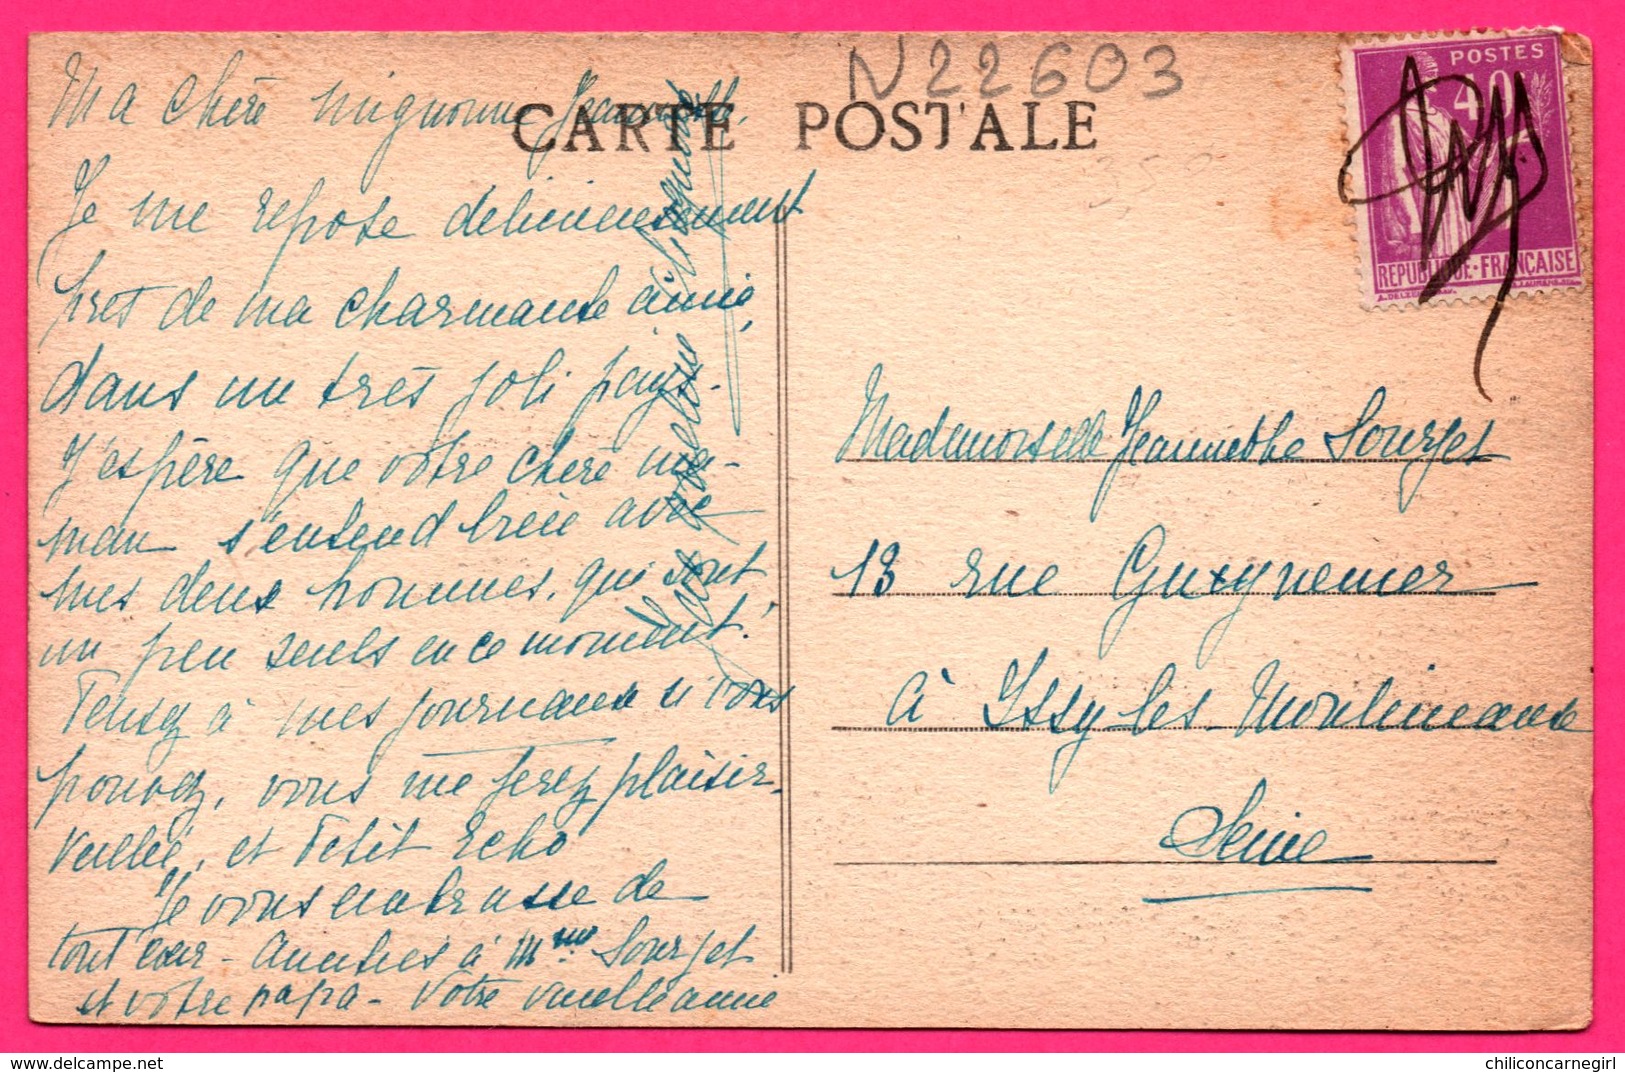 N22603
CARTE POSTALE
POSTES
40
REPUBLIQUE-FRANÇAISE
Ma chère mignonne Jeannette.
Je me repose délicieusement
près de ma charmante amie,
dans un très joli pays.
J'espère que votre chère ma-
man s'entend bien avec
mes deux hommes, qui sont
un peu seuls en ce moment.
Pensez à mes journaux si vous
pouvez, vous me ferez plaisir.
Veillée, et Petit Echo
Je vous embrasse de
tout cœur - Amitiés à Mme Sourget
et votre papa - Votre vieille amie
Mademoiselle Jeannette Sourget
13 rue Guynemer
à Issy les Moulineaux
Seine
chiliconcarnegirl